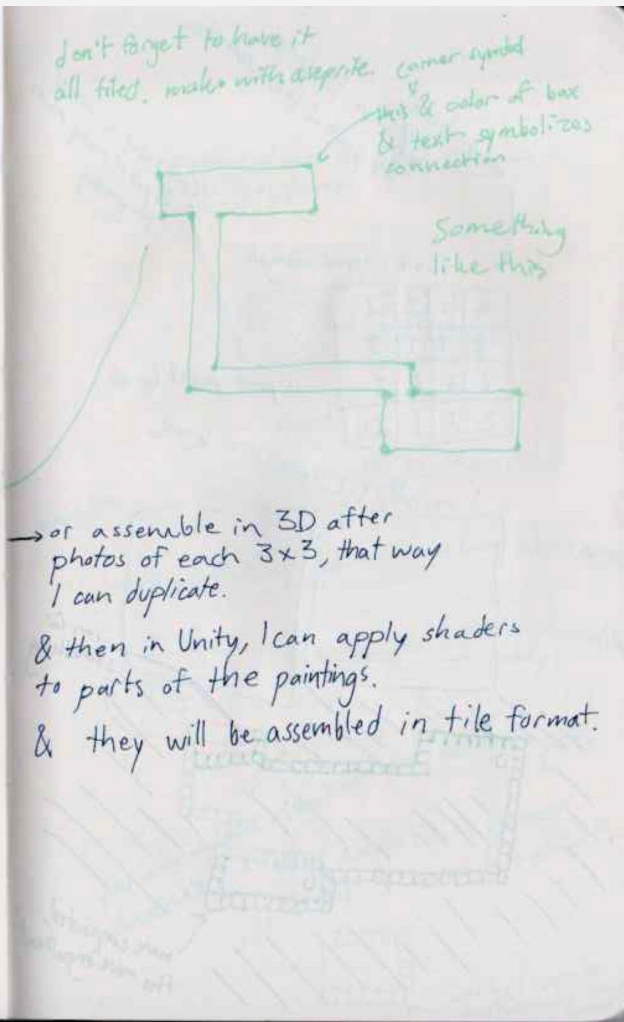 don't forget to have it
all tiled. make with aseprite.
corner symbol
this & color of box
& text symbolizes
connection
Something
like this
→ or assemble in 3D after
photos of each 3x3, that way
I can duplicate.
& then in Unity, I can apply shaders
to parts of the paintings.
& they will be assembled in tile format.